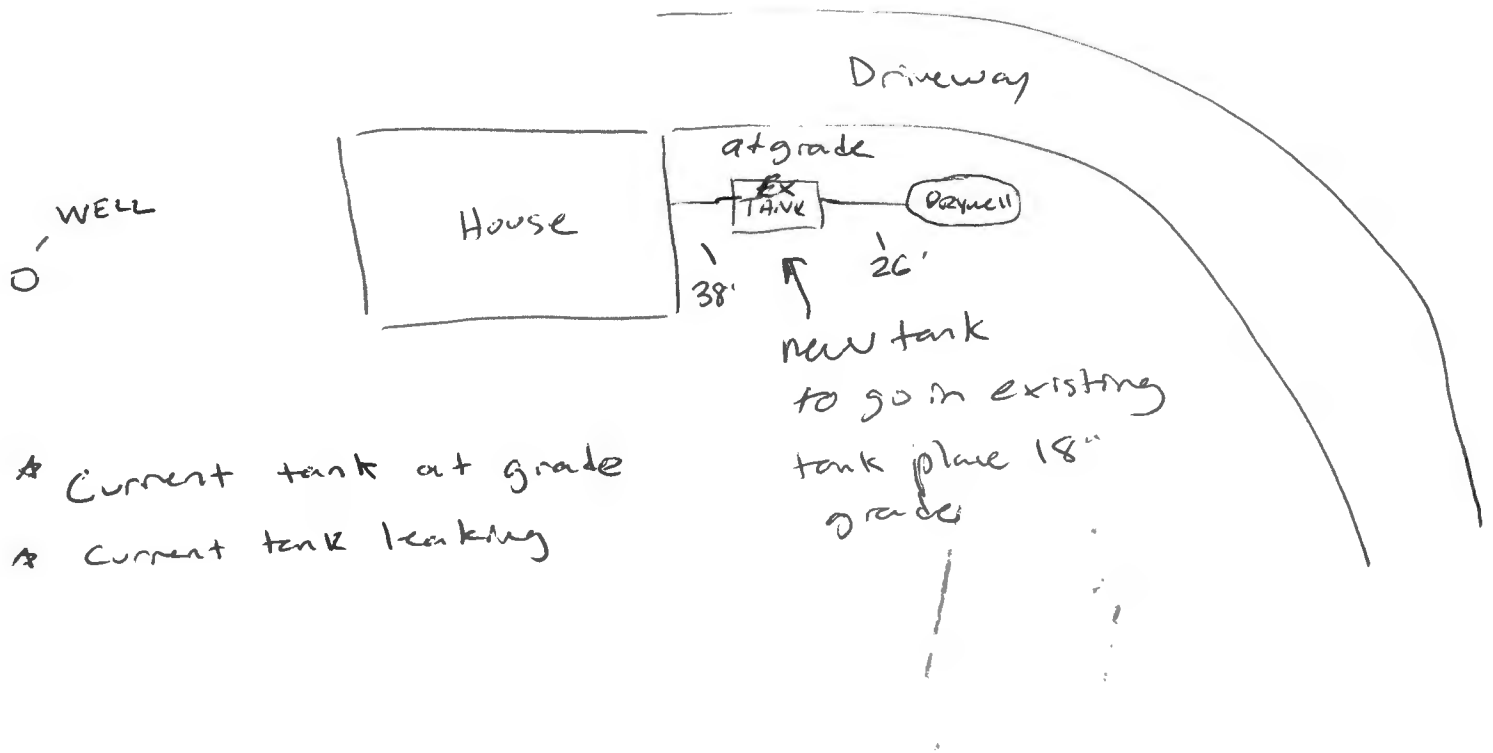 Driveway
at grade
WELL
House
EX
TANK
Drywell
38'
26'
new tank
to go in existing
tank place 18"
grade
* Current tank at grade
* Current tank leaking